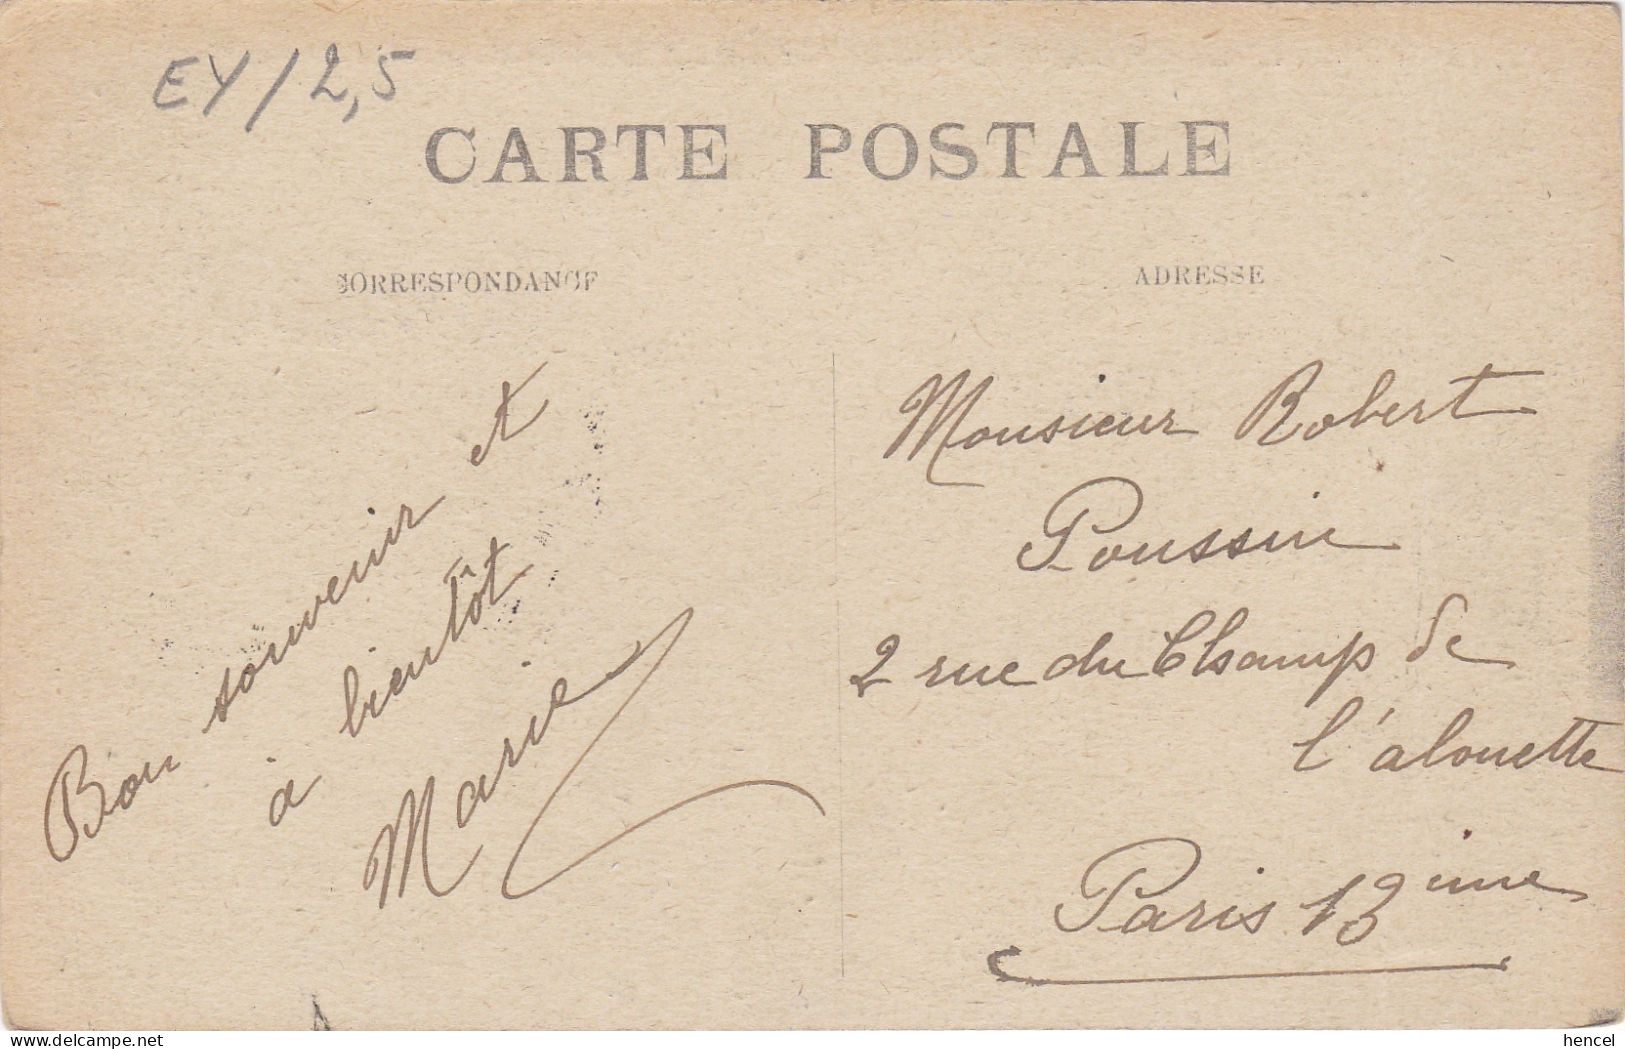 EY/2,5
CARTE POSTALE
CORRESPONDANCE
ADRESSE
Bon souvenir et
à bientôt
Marie
Monsieur Robert
Poussin
2 rue du Champ de
l'alouette
Paris 13ime
delcampe.net
hencel